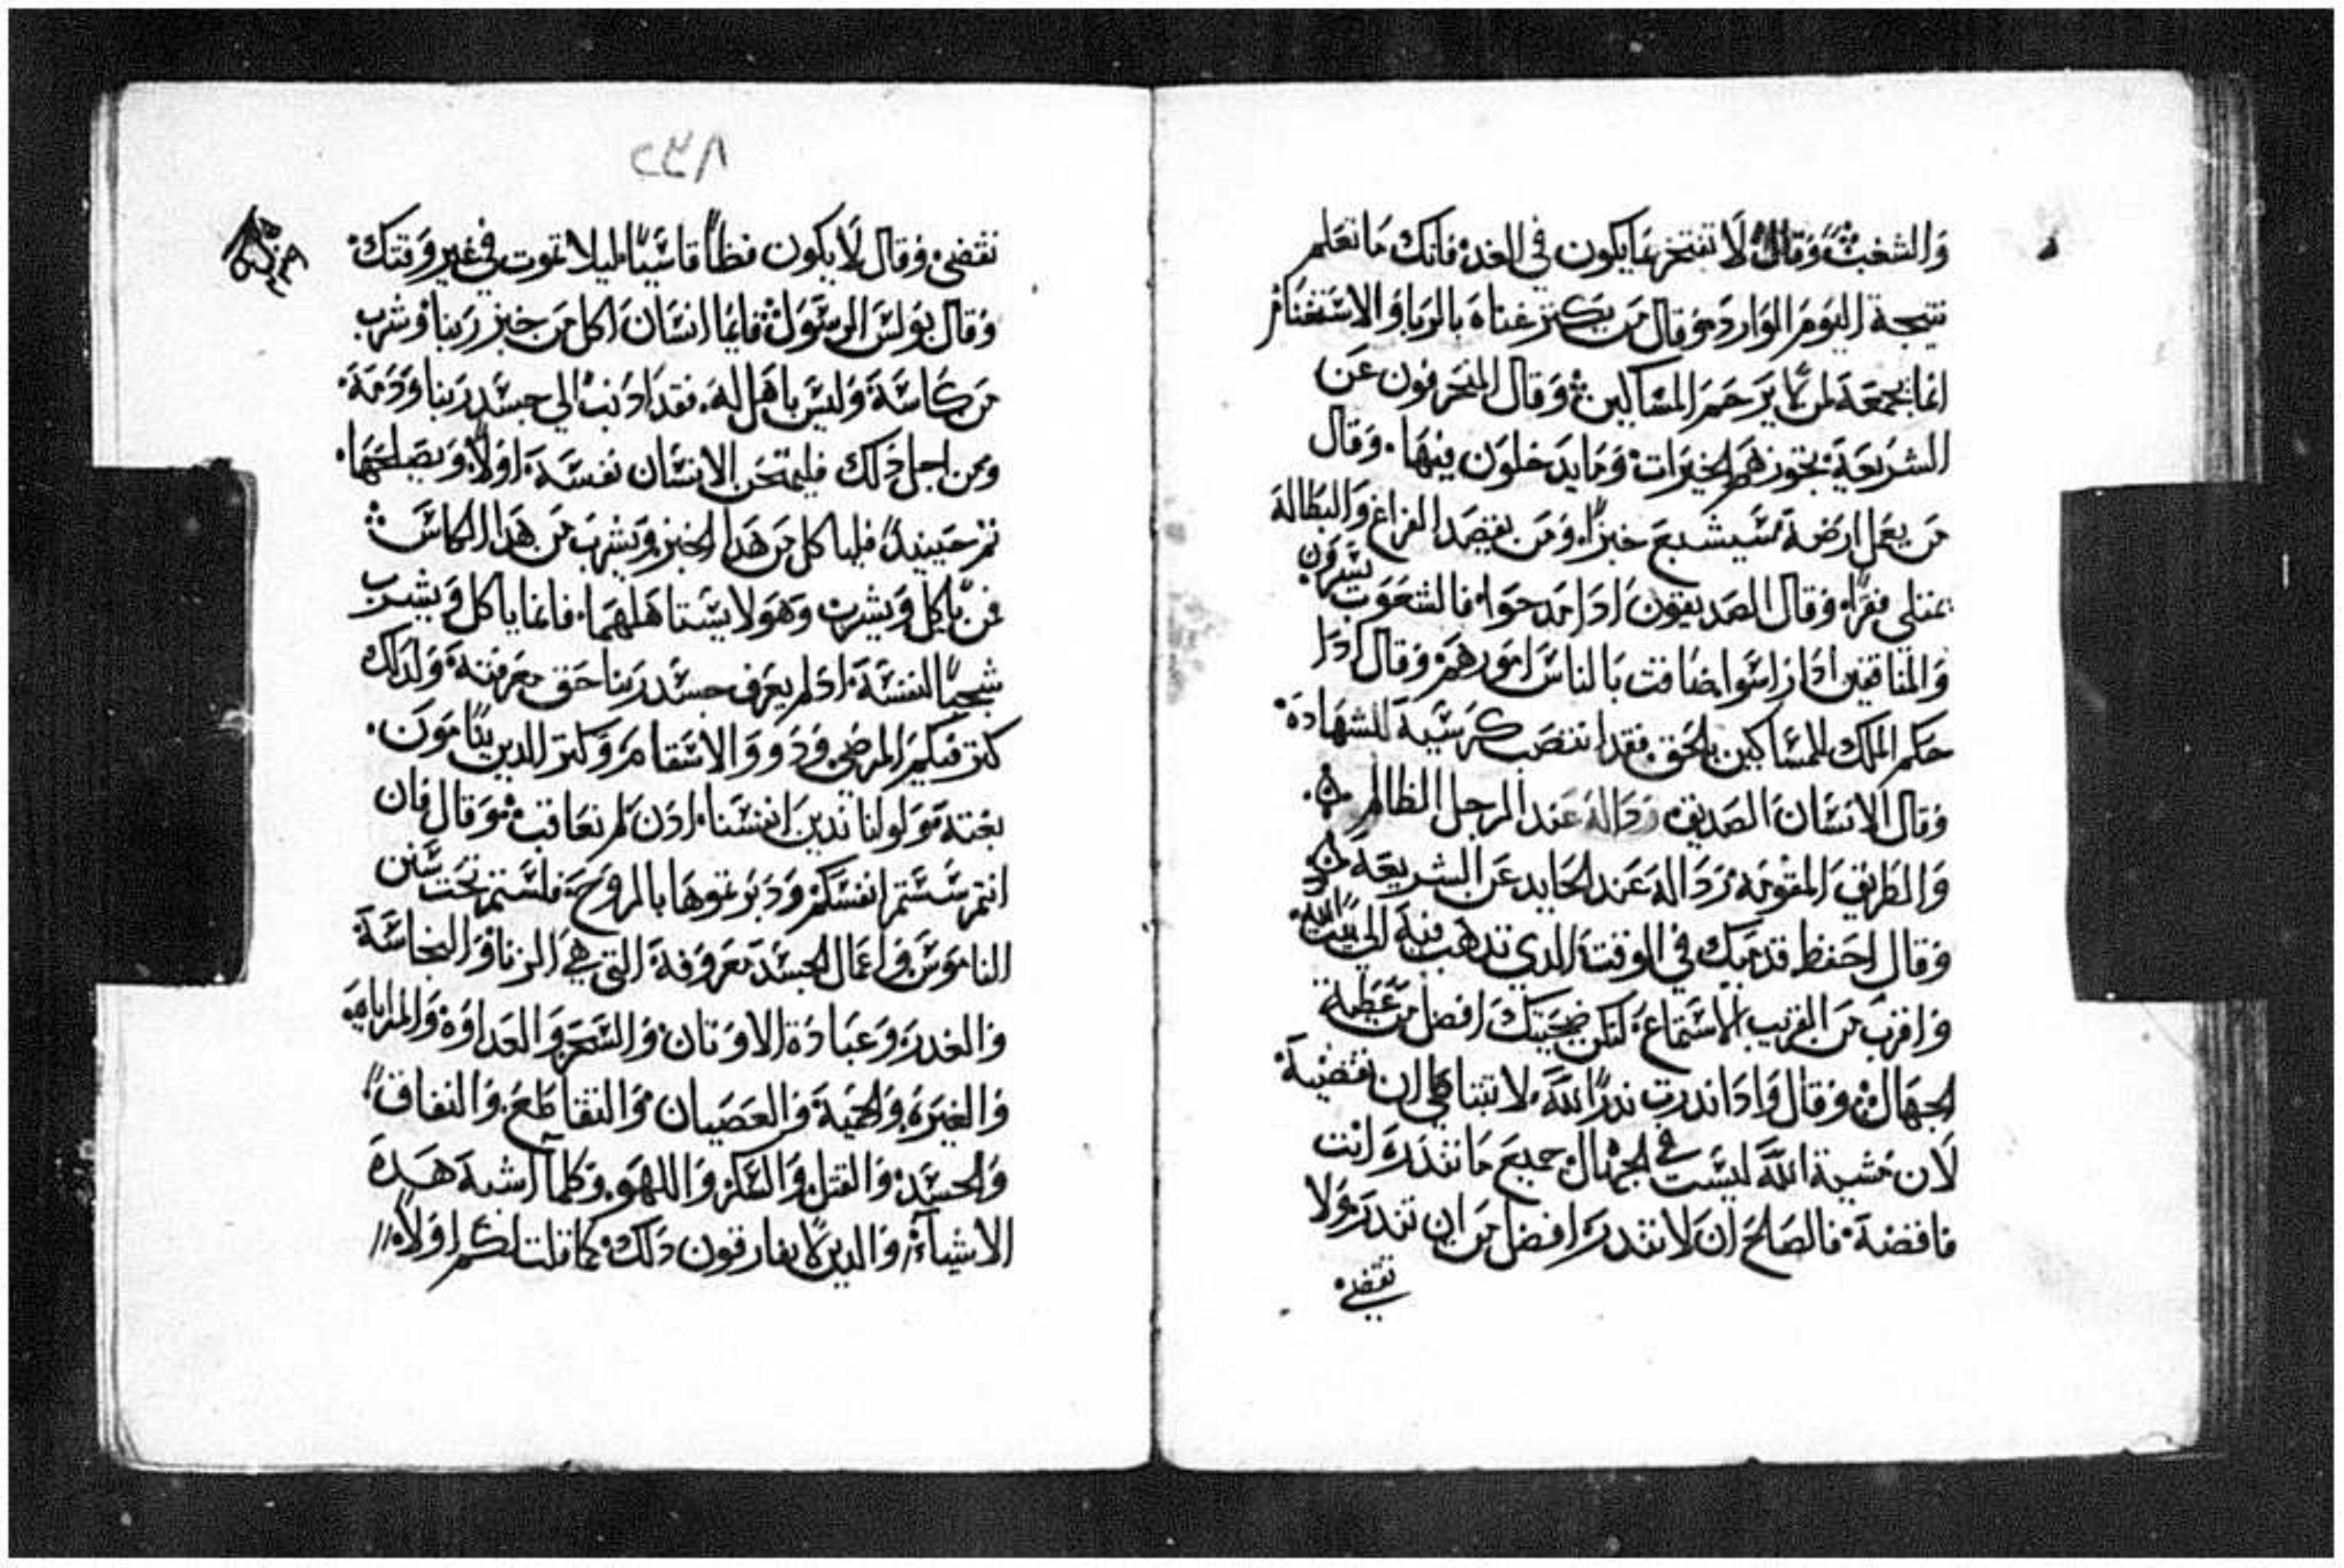 والشغب وقال لا تفتخر بما يكون في الغد فانك ما تعلم
نتيجة اليوم الوارد وقال من يكنز غناه بالربا والاستغنام
انما يجمعه لمن يرحم المساكين وقال المنحرفون عن
الشريعة تجوزهم الخيرات وما يدخلون فيها وقال
من يعمل ارضه سيشبع خبزا ومن يقصد الفراغ والبطالة
يمتلي فقرا وقال الصديقون ادا مدحوا فالشعوب تسر
والمنافقين ادا راسوا ضاقت بالناس امورهم وقال ادا
حكم الملك للمساكين بالحق فقد انتصب كرسيه للشهادة
وقال الانسان الصديق رداله عند الرجل الظالم
والطريق المقومه رداله عند الحايد عن الشريعة
وقال احفظ قدميك في الوقت الدي تدهب فيه الى بيت الله
واقرب من القريب للاستماع لتكن ضحيتك افضل من عطية
الجهال وقال وادا ندرت ندرا لله لا تتناهى ان تقضيه
لان مشية الله ليست في الجهال جميع ما تندره انت
فاقضه فالصلح ان لا تندر افضل من ان تندر ولا
تقضي
٢٣٨
تقضي وقال لا يكون فظا قاسيا ليلا تموت في غير وقتك
وقال بولس الرسول فايما انسان اكل من خبز ربنا وشرب
من كاسه وليس باهل له فقد ادنب الي جسد ربنا ودمه
ومن اجل دلك فليمتحن الانسان نفسه اولا ويصلحها
تم حينيد فلياكل من هدا الخبز ويشرب من هدا الكاس
فمن ياكل ويشرب وهو لا يستاهلهما فانما ياكل ويشرب
شجبا لنفسه اد لم يعرف جسد ربنا حق معرفته ولدلك
كتر فيكم المرضي ودوو الاسقام وكتر الدين ينامون
بغتة ولو اننا ندين انفسنا ادن لم نعاقب وقال فان
انتم سستم انفسكم ودبرتموها بالروح فلستم تحت سنن
الناموس واعمال الجسد معروفة التي هي الزنا والنجاسة
والغدر وعبادة الاوتان والسحر والعداوة والمراياه
والغيرة والحمية والعصيان والتقاطع والنفاق
والحسد والقتل والسكر واللهو وكلما اشبه هده
الاشياء والدين لا يفارقون دلك كما قلت لكم اولا